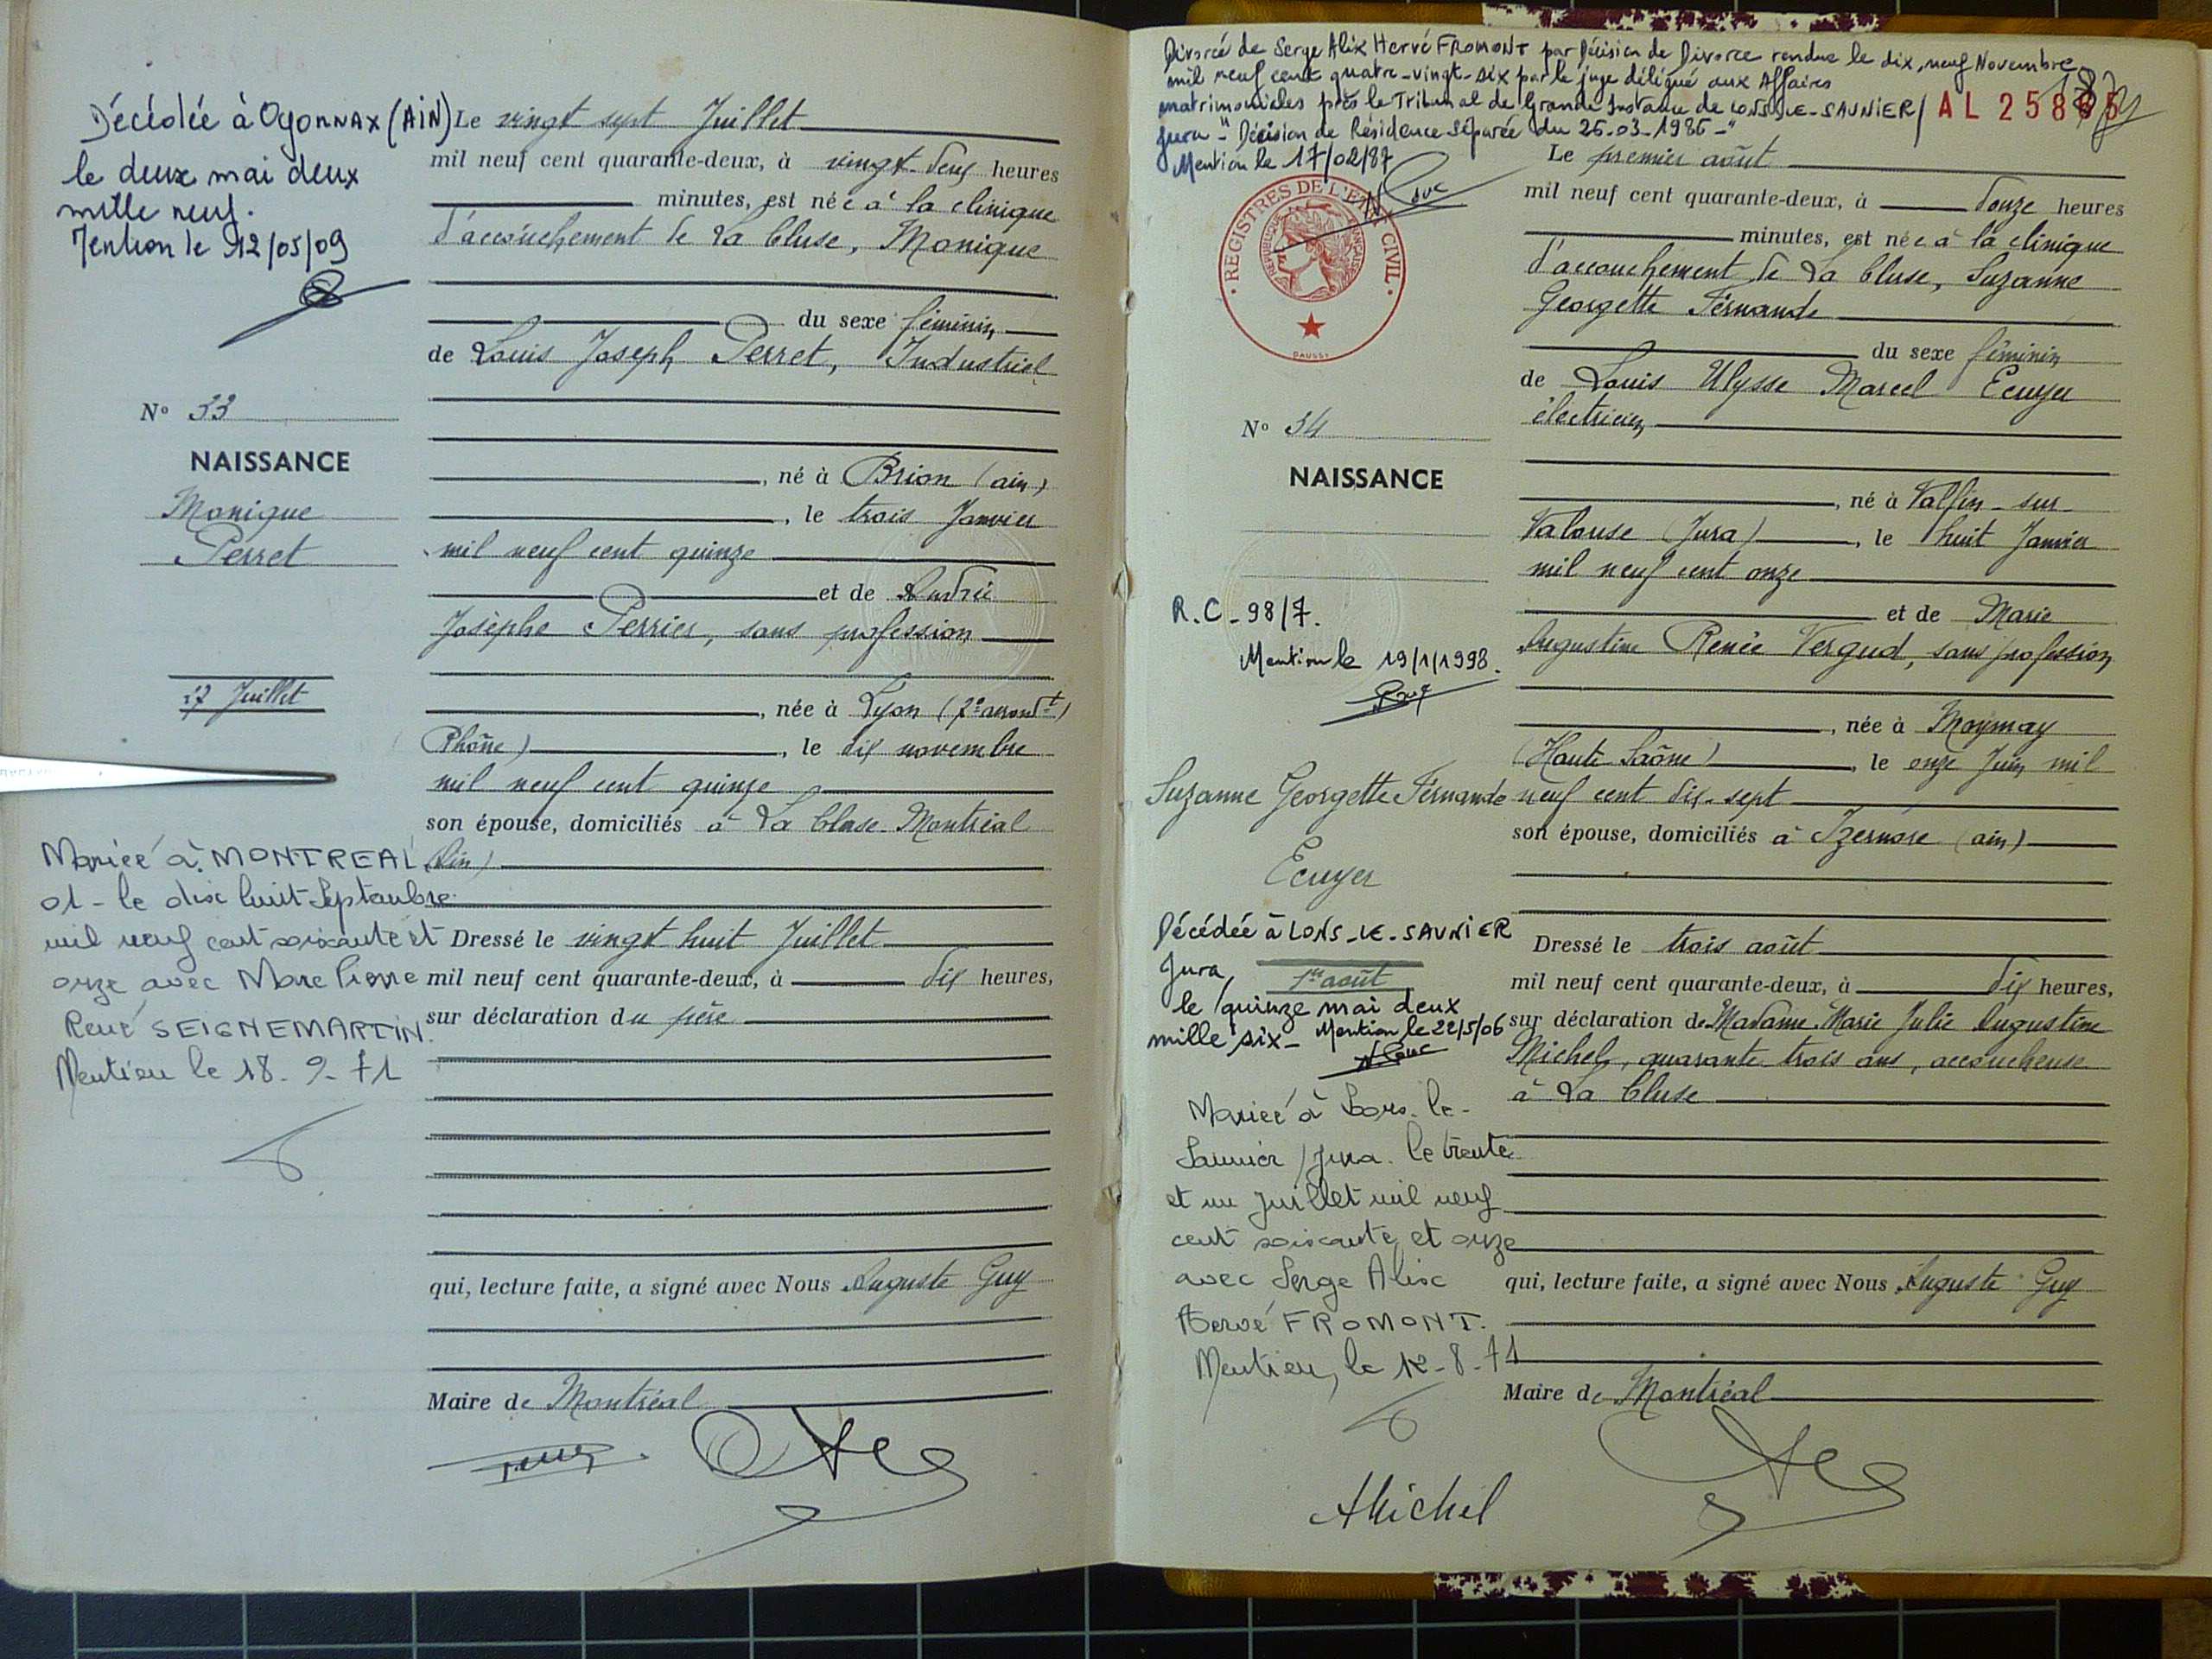 Décédée à Oyonnax (AIN)
le deux mai deux
mille neuf.
Mention le 12/05/09
N° 33
NAISSANCE
Monique
Perret
27 Juillet
Mariée à MONTREAL
01 - le dix huit Septembre
mil neuf cent soixante et
onze avec Marc Pierre
René SEIGNEMARTIN.
Mention le 18-9-71
Le vingt sept Juillet
mil neuf cent quarante-deux, à vingt-deux heures
minutes, est née à la clinique
d'accouchement de La Cluse, Monique
du sexe féminin
de Louis Joseph Perret, Industriel
, né à Brion (ain)
, le trois Janvier
mil neuf cent quinze
et de Andrée
Josèphe Perrier, sans profession
, née à Lyon (2e arrondt)
Rhône) , le dix novembre
mil neuf cent quinze
son épouse, domiciliés à La Cluse-Montréal
(Ain)
Dressé le vingt huit Juillet
mil neuf cent quarante-deux, à dix heures,
sur déclaration du père
qui, lecture faite, a signé avec Nous Auguste Guy
Maire de Montréal
Divorcée de Serge Alix Hervé FROMONT par Décision de Divorce rendue le dix, neuf Novembre
mil neuf cent quatre-vingt-six par le juge délégué aux Affaires
matrimoniales près le Tribunal de Grande Instance de LONS-LE-SAUNIER/
Jura -" Décision de Résidence Séparée du 26-03-1986-"
Mention le 17/02/87
AL 25885
REGISTRES DE L'ETAT CIVIL
REPUBLIQUE FRANÇAISE
DAUSSY
N° 34
NAISSANCE
R.C-98/7.
Mention le 19/1/1998.
Suzanne Georgette Fernande
Ecuyer
Décédée à LONS-LE-SAUNIER
Jura,
1er août
le quinze mai deux
mille six- Mention le 22/5/06
Mariée à Lons-le-
Saunier /Jura. le trente
et un juillet mil neuf
cent soixante et onze
avec Serge Alix
Hervé FROMONT.
Mention, le 12-8-71
Le premier août
mil neuf cent quarante-deux, à douze heures
minutes, est née à la clinique
d'accouchement de La Cluse, Suzanne
Georgette Fernande
du sexe féminin
de Louis Ulysse Marcel Ecuyer
électricien
, né à Valfin-sur-
Valouse (Jura) , le huit Janvier
mil neuf cent onze
et de Marie
Augustine Renée Vergud, sans profession
, née à Moymay
(Haute Saône) , le onze Juin mil
neuf cent dix-sept
son épouse, domiciliés à Izernore (ain)
Dressé le trois août
mil neuf cent quarante-deux, à dix heures,
sur déclaration de Madame Marie Julie Augustine
Michel, quarante trois ans, accoucheuse
à La Cluse
qui, lecture faite, a signé avec Nous Auguste Guy
Maire de Montréal
AMichel